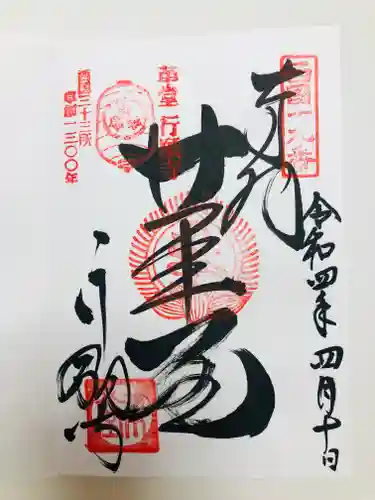 西国十九番
奉拝
令和四年四月十日
革堂 行願寺
革堂
西国三十三所
草創一三〇〇年
行願寺